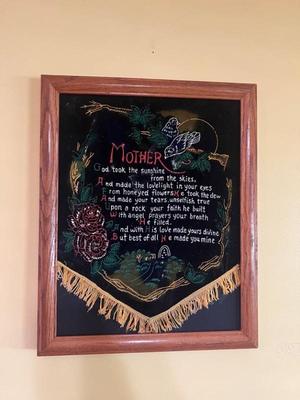 MOTHER
God took the sunshine
from the skies,
And made the lovelight in your eyes
From honeyed flowers He took the dew
And made your tears, unselfish true
Upon a rock your faith he built
With angel prayers your breath
He filled.
And with His love made yours divine
But best of all He made you mine